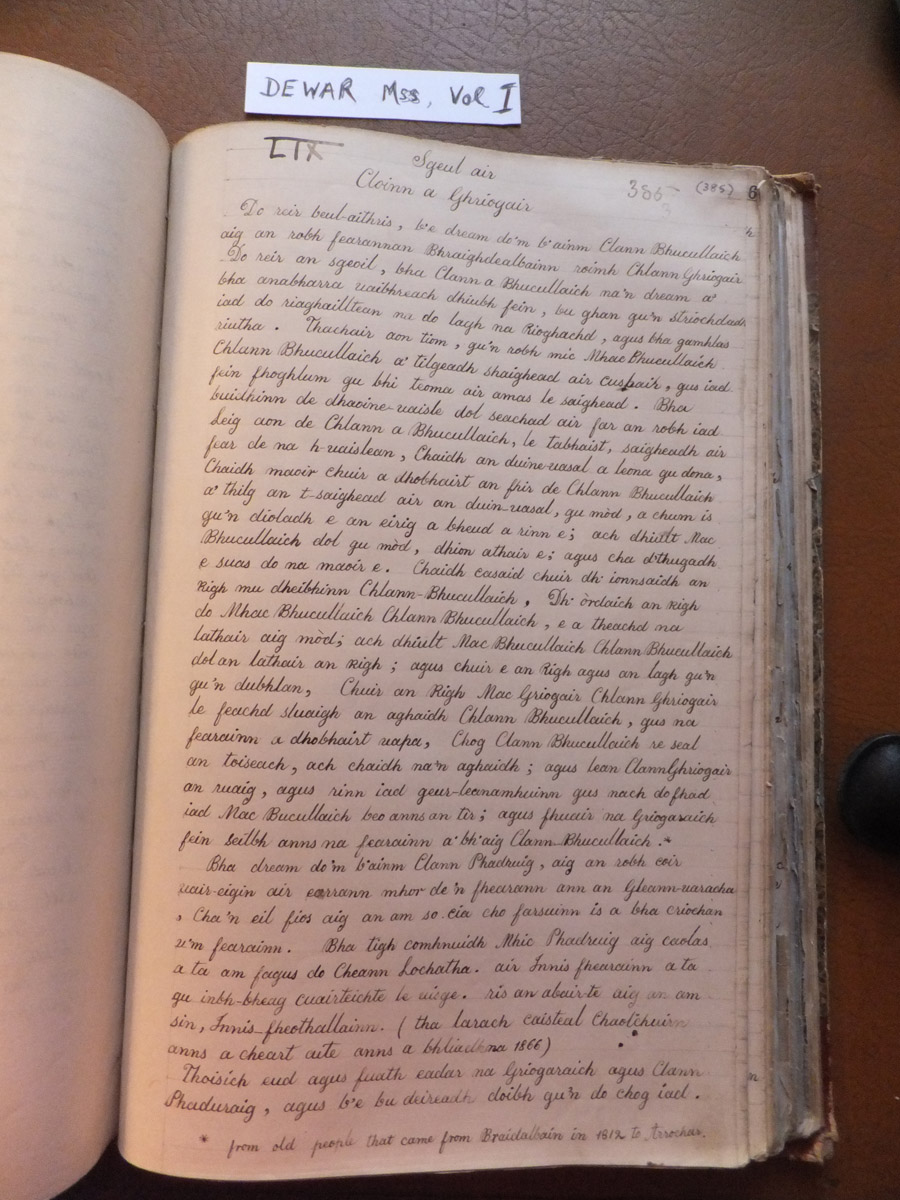 DEWAR Mss, Vol I
LIX
Sgeul air
Cloinn a Ghriogair
385 (385) 6
3
Do reir beul-aithris, b'e dream do'm b'ainm Clann Bhucullaich
aig an robh fearannan Bhraighdealbainn roimh Chlann Ghriogair
Do reir an sgeoil, bha Clann a Bhucullaich na'n dream a'
bha anabharra uaibhreach dhiubh fein, bu ghan gu'n striochdadh
iad do riaghailltean na do lagh na Rioghachd, agus bha gamhlas
riutha. Thachair aon tiom, gu'n robh mic Mhac Bhucullaich
Chlann Bhucullaich a' tilgeadh shaighead air cuspair, gus iad
fein fhoghlum gu bhi teoma air amas le saighead. Bha
buidhinn de dhaoine-uaisle dol seachad air far an robh iad
Leig aon de Chlann a Bhucullaich, le tabhaist, saigheadh air
fear de na h-uaislean, Chaidh an duine-uasal a leona gu dona,
Chaidh maoir chuir a dhobhairt an fhir de Chlann Bhucullaich
a' thilg an t-saighead air an duin-uasal, gu mòd, a chum is
gu'n dioladh e an eirig a bheud a rinn e; ach dhiult Mac
Bhucullaich dol gu mòd, dhion athair e; agus cha d'thugadh
e suas do na maoir e. Chaidh casaid chuir dh' ionnsaidh an
Righ mu dheibhinn Chlann-Bhucullaich, Dh' òrdaich an Righ
do Mhac Bhucullaich Chlann Bhucullaich, e a theachd na
lathair aig mòd; ach dhiult Mac Bhucullaich Chlann Bhucullaich
dol an lathair an Righ; agus chuir e an Righ agus an lagh gu'n
gu'n dubhlan, Chuir an Righ Mac Griogair Chlann Ghriogair
le feachd sluaigh an aghaidh Chlann Bhucullaich, gus na
fearainn a dhobhairt uapa, Chog Clann Bhucullaich re seal
an toiseach, ach chaidh na'n aghaidh; agus lean Clann Ghriogair
an ruaig, agus rinn iad geur-leanamhuinn gus nach do fhad
iad Mac Bucullaich beo anns an tir; agus fhuair na Griogaraich
fein seilbh anns na fearainn a' bh'aig Clann-Bhucullaich.*
Bha dream do'm b'ainm Clann Phadruig, aig an robh coir
uair-eigin air earrann mhor de'n fhearann ann an Gleann-uaracha
, Cha'n eil fios aig an am so cia cho farsuinn is a bha criochan
u'm fearainn. Bha tigh comhnuidh Mhic Phadruig aig caolas
a ta am fagus do Cheann Lochatha. air Innis fhearainn a ta
gu inbh-bheag cuairteichte le uisge. ris an abair-te aig an am
sin, Innis-fheothallainn. (tha larach caisteal Chaolchuirn
anns a cheart aite anns a bhliadhna 1866)
Thoisich eud agus fuath eadar na Griogaraich agus Clann
Phaduraig, agus b'e bu deireadh doibh gu'n do chog iad.
* from old people that came from Braidalbain in 1812 to Arrochar.